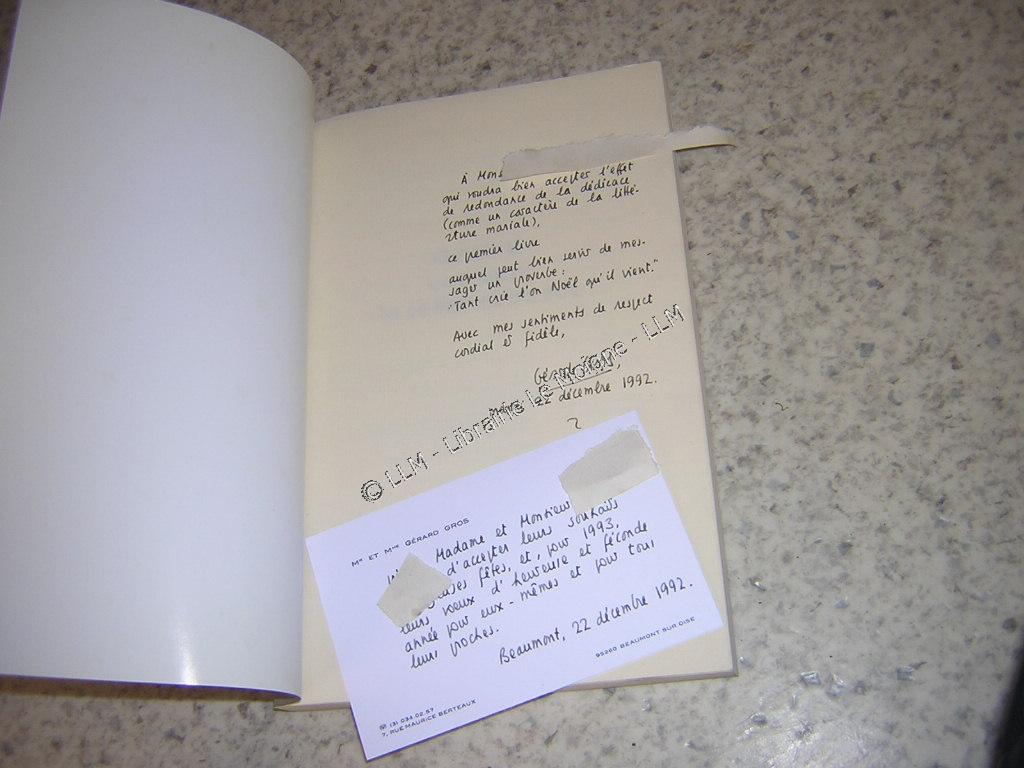 À Mons
qui voudra bien accepter l'effet
de redondance de la dédicace
(comme un caractère de la litté-
rature mariale),
ce premier livre
auquel peut bien servir de mes-
sager un proverbe:
"Tant crie l'on Noël qu'il vient."
Avec mes sentiments de respect
cordial et fidèle,
22 décembre 1992.
© LLM - Librairie Le Moigne - LLM
Mr ET Mme GÉRARD GROS
Madame et Monsieur
d'accepter leurs souhaits
fêtes, et, pour 1993,
leurs voeux d'heureuse et féconde
année pour eux-mêmes et pour tous
leurs proches.
Beaumont, 22 décembre 1992.
☎ (3) 034.02.57
7, RUE MAURICE BERTEAUX
95260 BEAUMONT SUR OISE